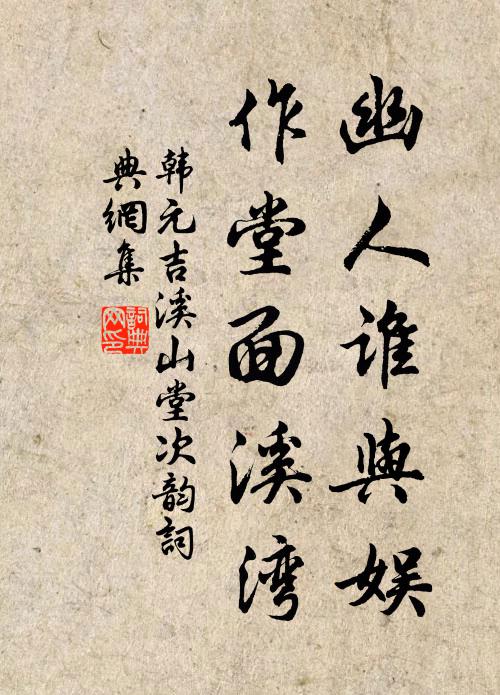 幽人谁與娱
作堂面溪湾
韩元吉溪山堂次韵詞
典網集
詞典
网印